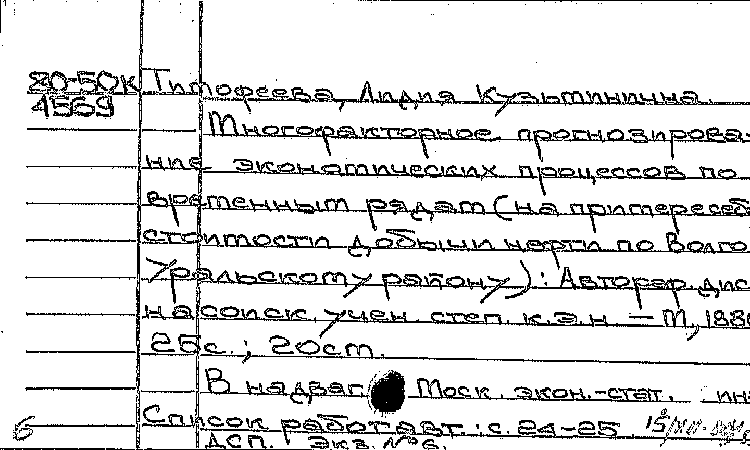 80-50К Тимофеева, Лидия Кузьминична.
4569
Многофакторное прогнозирова-
ние экономических процессов по
временным рядам (на примере себе
стоимости добычи нефти по Волго
Уральскому району): Автореф. дис
на соиск. учен. степ. к.э.н. — М., 1980
25с.; 20см.
В надзаг. Моск. экон.-стат. ин
Список работ авт.: с. 24-25.
ДСП. Экз. №6.
б